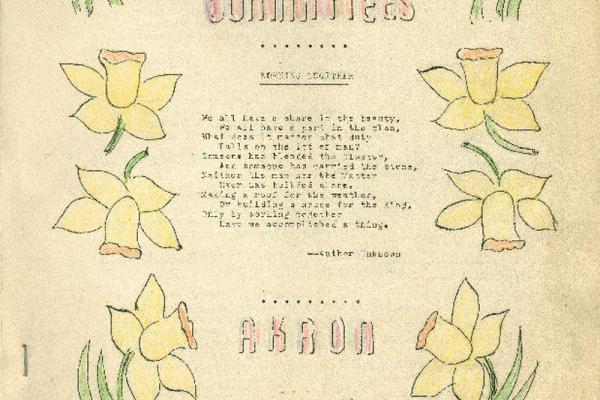 COMMITTEES
WORKING TOGETHER
We all have a share in the beauty,
We all have a part in the plan,
What does it matter what duty
Falls on the lot of man?
Someone has blended the plaster,
And someone has carried the stone,
Neither the man nor the Master
Ever has builded alone.
Making a roof for the weather,
Or building a house for the King,
Only by working together
Have we accomplished a thing.
--Author Unknown
AKRON